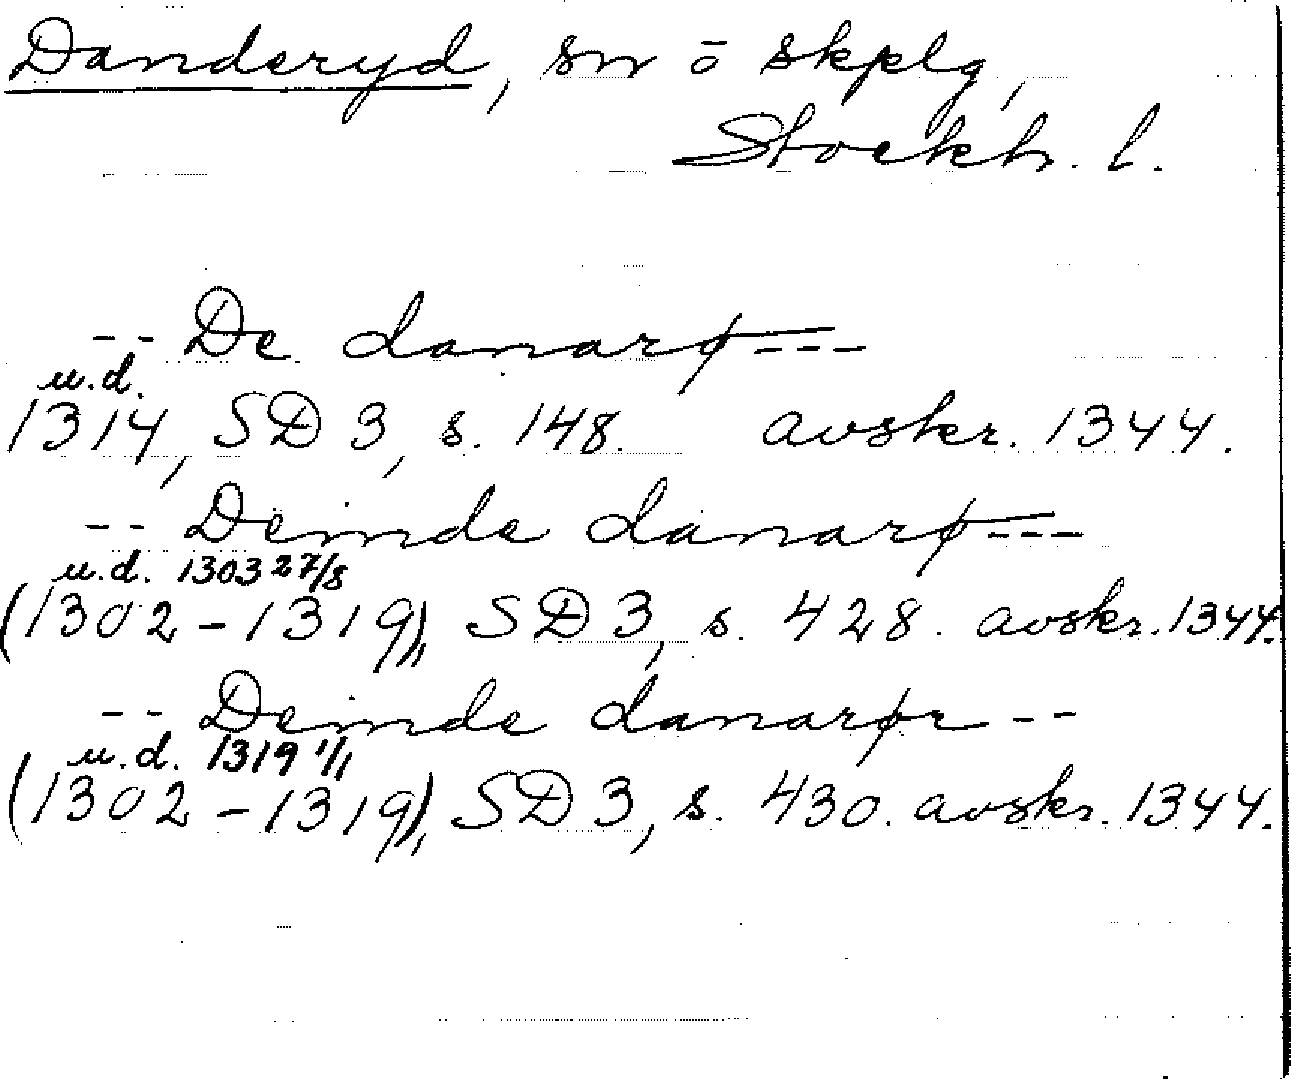 Danderyd, sn ō skplg,
Stockh. l.
-- De danarꝑ ---
u.d.
1314, SD 3, s. 148. avskr. 1344.
-- Deinde danarꝑ ---
u.d. 1303 27/8
(1302-1319), SD 3, s. 428. avskr. 1344.
-- Deinde danarꝑr --
u.d. 1319 1/1
(1302-1319), SD 3, s. 430. avskr. 1344.